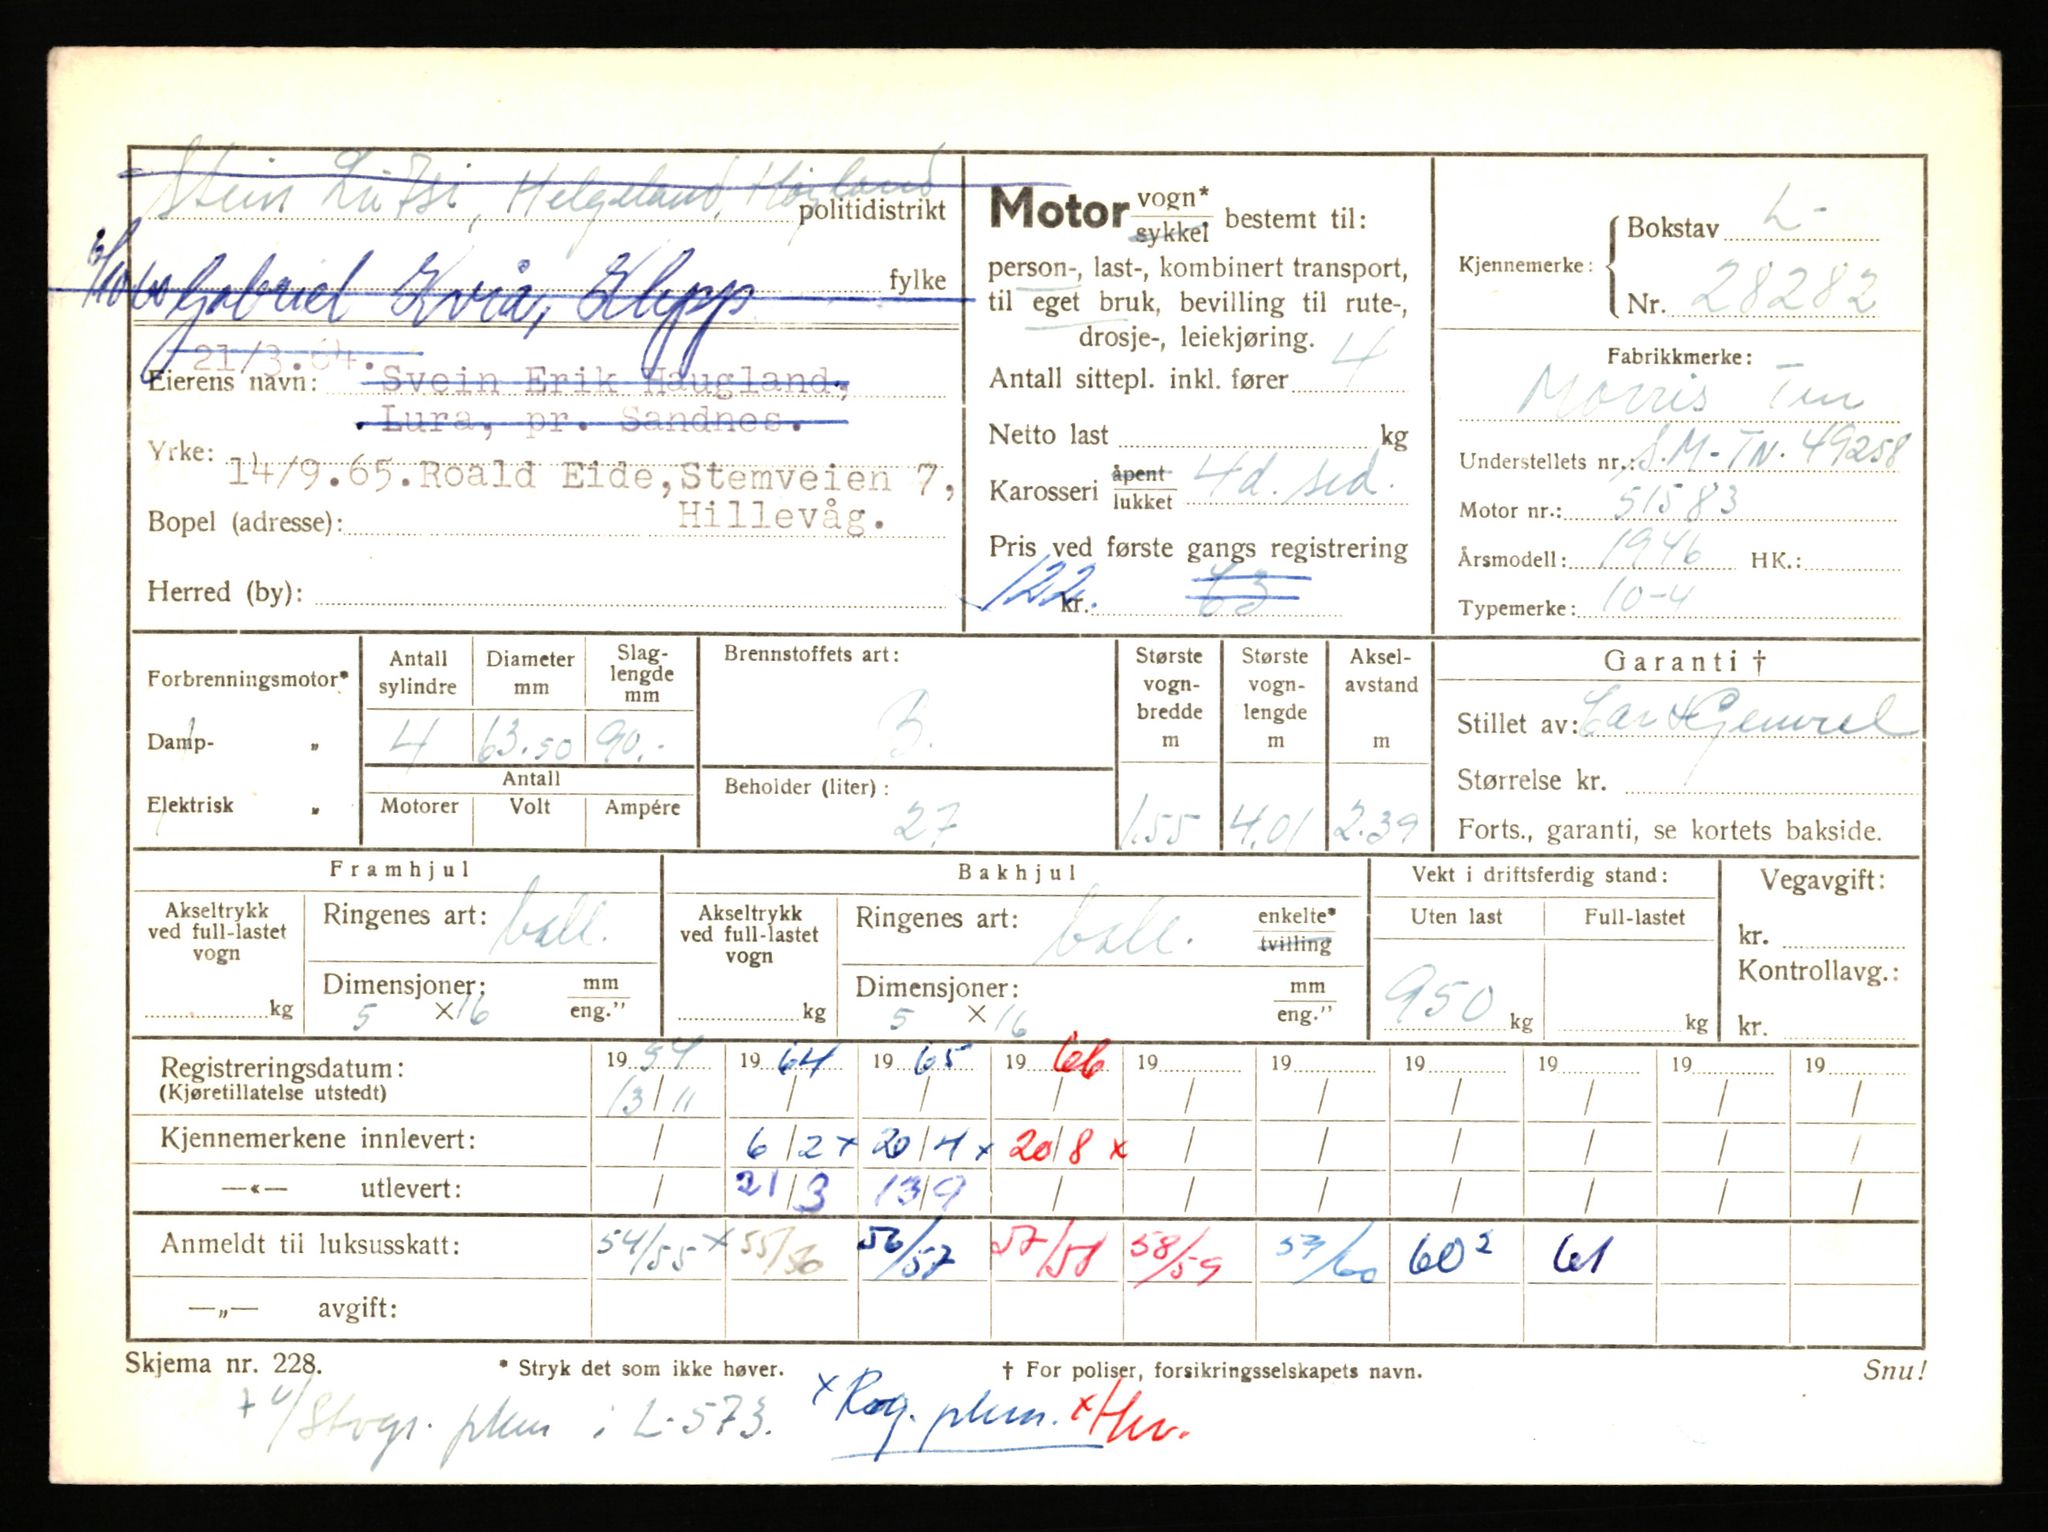 Stein Helgeland, Høyland
politidistrikt
Gabriel Kviå, Klepp
fylke
21/3.64.
Eierens navn: Svein Erik Haugland,
Lura, pr. Sandnes.
Yrke:
14/9.65.Roald Eide,Stemveien 7,
Hillevåg.
Bopel (adresse):
Herred (by):
Motor vogn* / sykkel bestemt til:
person-, last-, kombinert transport,
til eget bruk, bevilling til rute-,
drosje-, leiekjøring.
Antall sittepl. inkl. fører 4
Netto last kg
Karosseri åpent / lukket 4d. sed.
Pris ved første gangs registrering
122. kr. 63
Kjennemerke:
Bokstav L-
Nr. 28282
Fabrikkmerke:
Morris Ten
Understellets nr.: S.M-TN.49258
Motor nr.: 51583
Årsmodell: 1946 HK.:
Typemerke: 10-4
Forbrenningsmotor*
Damp- „
Elektrisk „
Antall sylindre
4
Diameter mm
63.50
Slag-
lengde
mm
90.-
Antall
Motorer Volt Ampére
Brennstoffets art:
B.
Beholder (liter):
27
Største
vogn-
bredde
m
1.55
Største
vogn-
lengde
m
4.01
Aksel-
avstand
m
2.39
Garanti †
Stillet av: Car & General
Størrelse kr.
Forts., garanti, se kortets bakside.
Framhjul
Akseltrykk
ved full-lastet
vogn
kg
Ringenes art: ball.
Dimensjoner: mm / eng."
5 × 16
Bakhjul
Akseltrykk
ved full-lastet
vogn
kg
Ringenes art: ball. enkelte* / tvilling
Dimensjoner: mm / eng."
5 × 16
Vekt i driftsferdig stand:
Uten last Full-lastet
950 kg kg
Vegavgift:
kr.
Kontrollavg.:
kr.
Registreringsdatum: 1954 1964 1965 1966 19 19 19 19 19 19
(Kjøretillatelse utstedt) 13/11 / / / / / / / / /
Kjennemerkene innlevert: / 6/2 x 20/4 x 20/8 x / / / / / /
—«— utlevert: / 21/3 13/9 / / / / / / /
Anmeldt til luksusskatt: 54/55 x 55/56 56/57 57/58 58/59 59/60 60² 61
—„— avgift:
Skjema nr. 228.
* Stryk det som ikke høver.
† For poliser, forsikringsselskapets navn.
Snu!
i L-573. x Rog. x Hv.